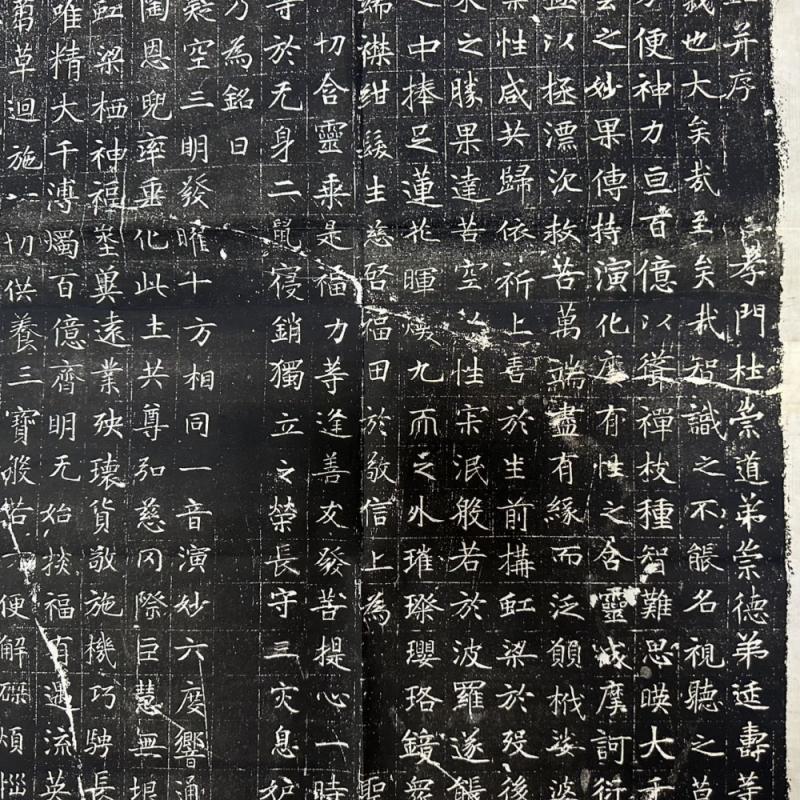 并序 孝門杜崇道弟崇德弟延壽等
哉也大矣哉至矣哉智識之不能名視聽之莫
方便神力亘百億以聳禪枝種智難思暎大千
之妙果傳持演化度有性之含靈咸摩訶衍
以極漂沉救苦萬端盡有緣而泛願栰娑婆
性咸共歸依祈上善於生前搆虹梁於歿後
之勝果達苦空性宗泯般若於波羅遂能
之中捧足蓮花暉煥九而之外璀璨瓔珞鏡
襟紺髮生慈啓福田於敬信上為 聖
切含靈乘是福力等逢善友發菩提心一時
等於无身二鼠寑銷獨立之榮長守三灾息妒
乃為銘曰
疑空三明發曜十方相同一音演妙六度響通
陶恩兜率垂化此土共尊弘慈冈際巨慧無垠
虹梁栖神福壑奠遠業殃瓌貨敬施機巧騁長
唯精大千溥燭百億齊明无始掞福有遇流英
草迴施一切供養三寶般若方便解磔煩惱